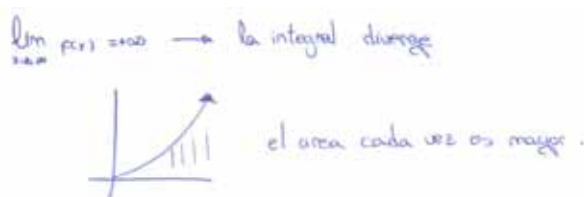 lim f(x) = +∞ → la integral diverge
x→∞
el area cada vez es mayor.